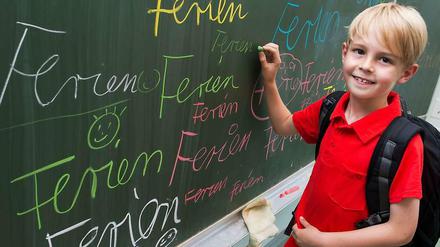 Ferien
Ferien
Ferien
Ferien
Ferien
Ferien
Ferien
Ferien
Ferien
Ferien
Ferien
Ferien
Ferien